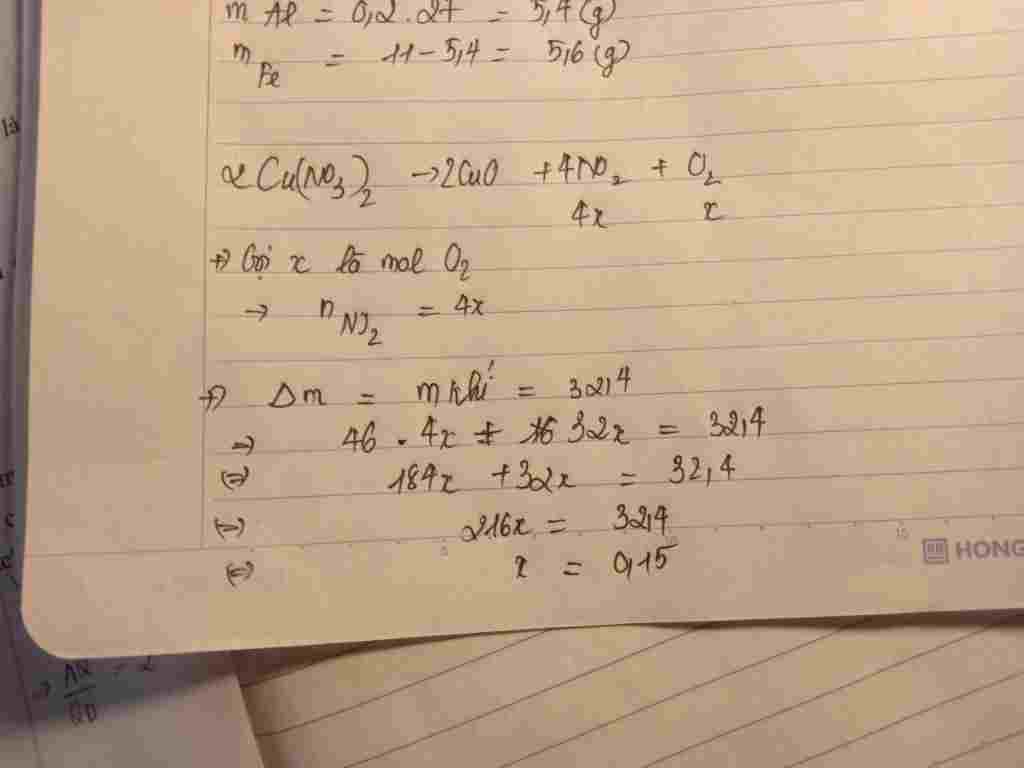 là
m Al = 0,2.27 = 5,4 (g)
m Fe = 11 - 5,4 = 5,6 (g)
2Cu(NO3)2 → 2CuO + 4NO2 + O2
4x x
+) Gọi x là mol O2
→ n NO2 = 4x
+) Δm = m khí = 32,4
⇒ 46 . 4x + 32x = 32,4
⇔ 184x + 32x = 32,4
⇔ 216x = 32,4
⇔ x = 0,15
5 10 15
HONG